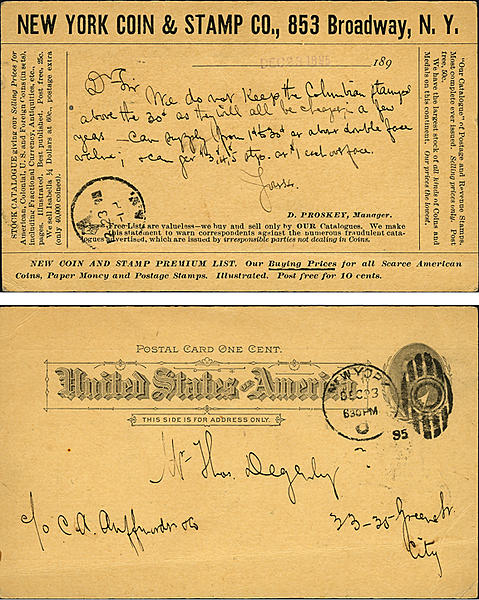 NEW YORK COIN & STAMP CO., 853 Broadway, N. Y.
"STOCK CATALOGUE giving our Selling Prices for
American, Colonial, U. S. and Foreign Coins (in sets),
including Fractional Currency, Antiquities, etc.,
pages, illustrated. Best published. Post free, 25c.
We sell Isabella ¼ Dollars at 60c., postage extra
(only 40,000 coined).
DEC 23 1895
189
Dr Sir We do not keep the Columbian stamps
above the 30c as they will all be cheaper in a few
years – can supply from 1c to 30c at about double face
value; & can get 3, 4, 5 at 1 cent over face.
Yours.
D. PROSKEY, Manager.
Free Lists are valueless—we buy and sell only by OUR Catalogues. We make
this statement to warn correspondents against the numerous fraudulent cata-
logues advertised, which are issued by irresponsible parties not dealing in Coins.
"Our Catalogue" of Postage and Revenue Stamps.
Most complete ever issued. Selling prices only. Post
free, 50c.
We have the largest stock of all kinds of Coins and
Medals on this continent. Our prices the lowest.
NEW COIN AND STAMP PREMIUM LIST. Our Buying Prices for all Scarce American
Coins, Paper Money and Postage Stamps. Illustrated. Post free for 10 cents.
POSTAL CARD ONE CENT.
United States of America
THIS SIDE IS FOR ADDRESS ONLY.
NEW YORK
DEC 23
630PM
95
Mr Thos. Degenly
c/o C. A. & Co
33-35 Greene St.
City